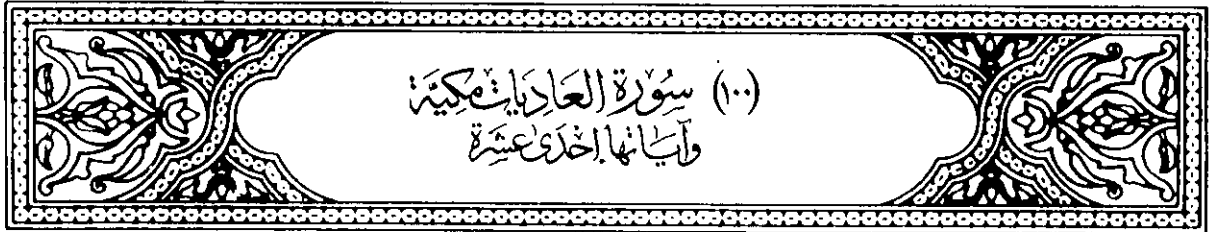 (١٠٠) سُورَة العَادِيَات مَكيَّة
وَآيَاتهَا إحْدَى عَشَرَة